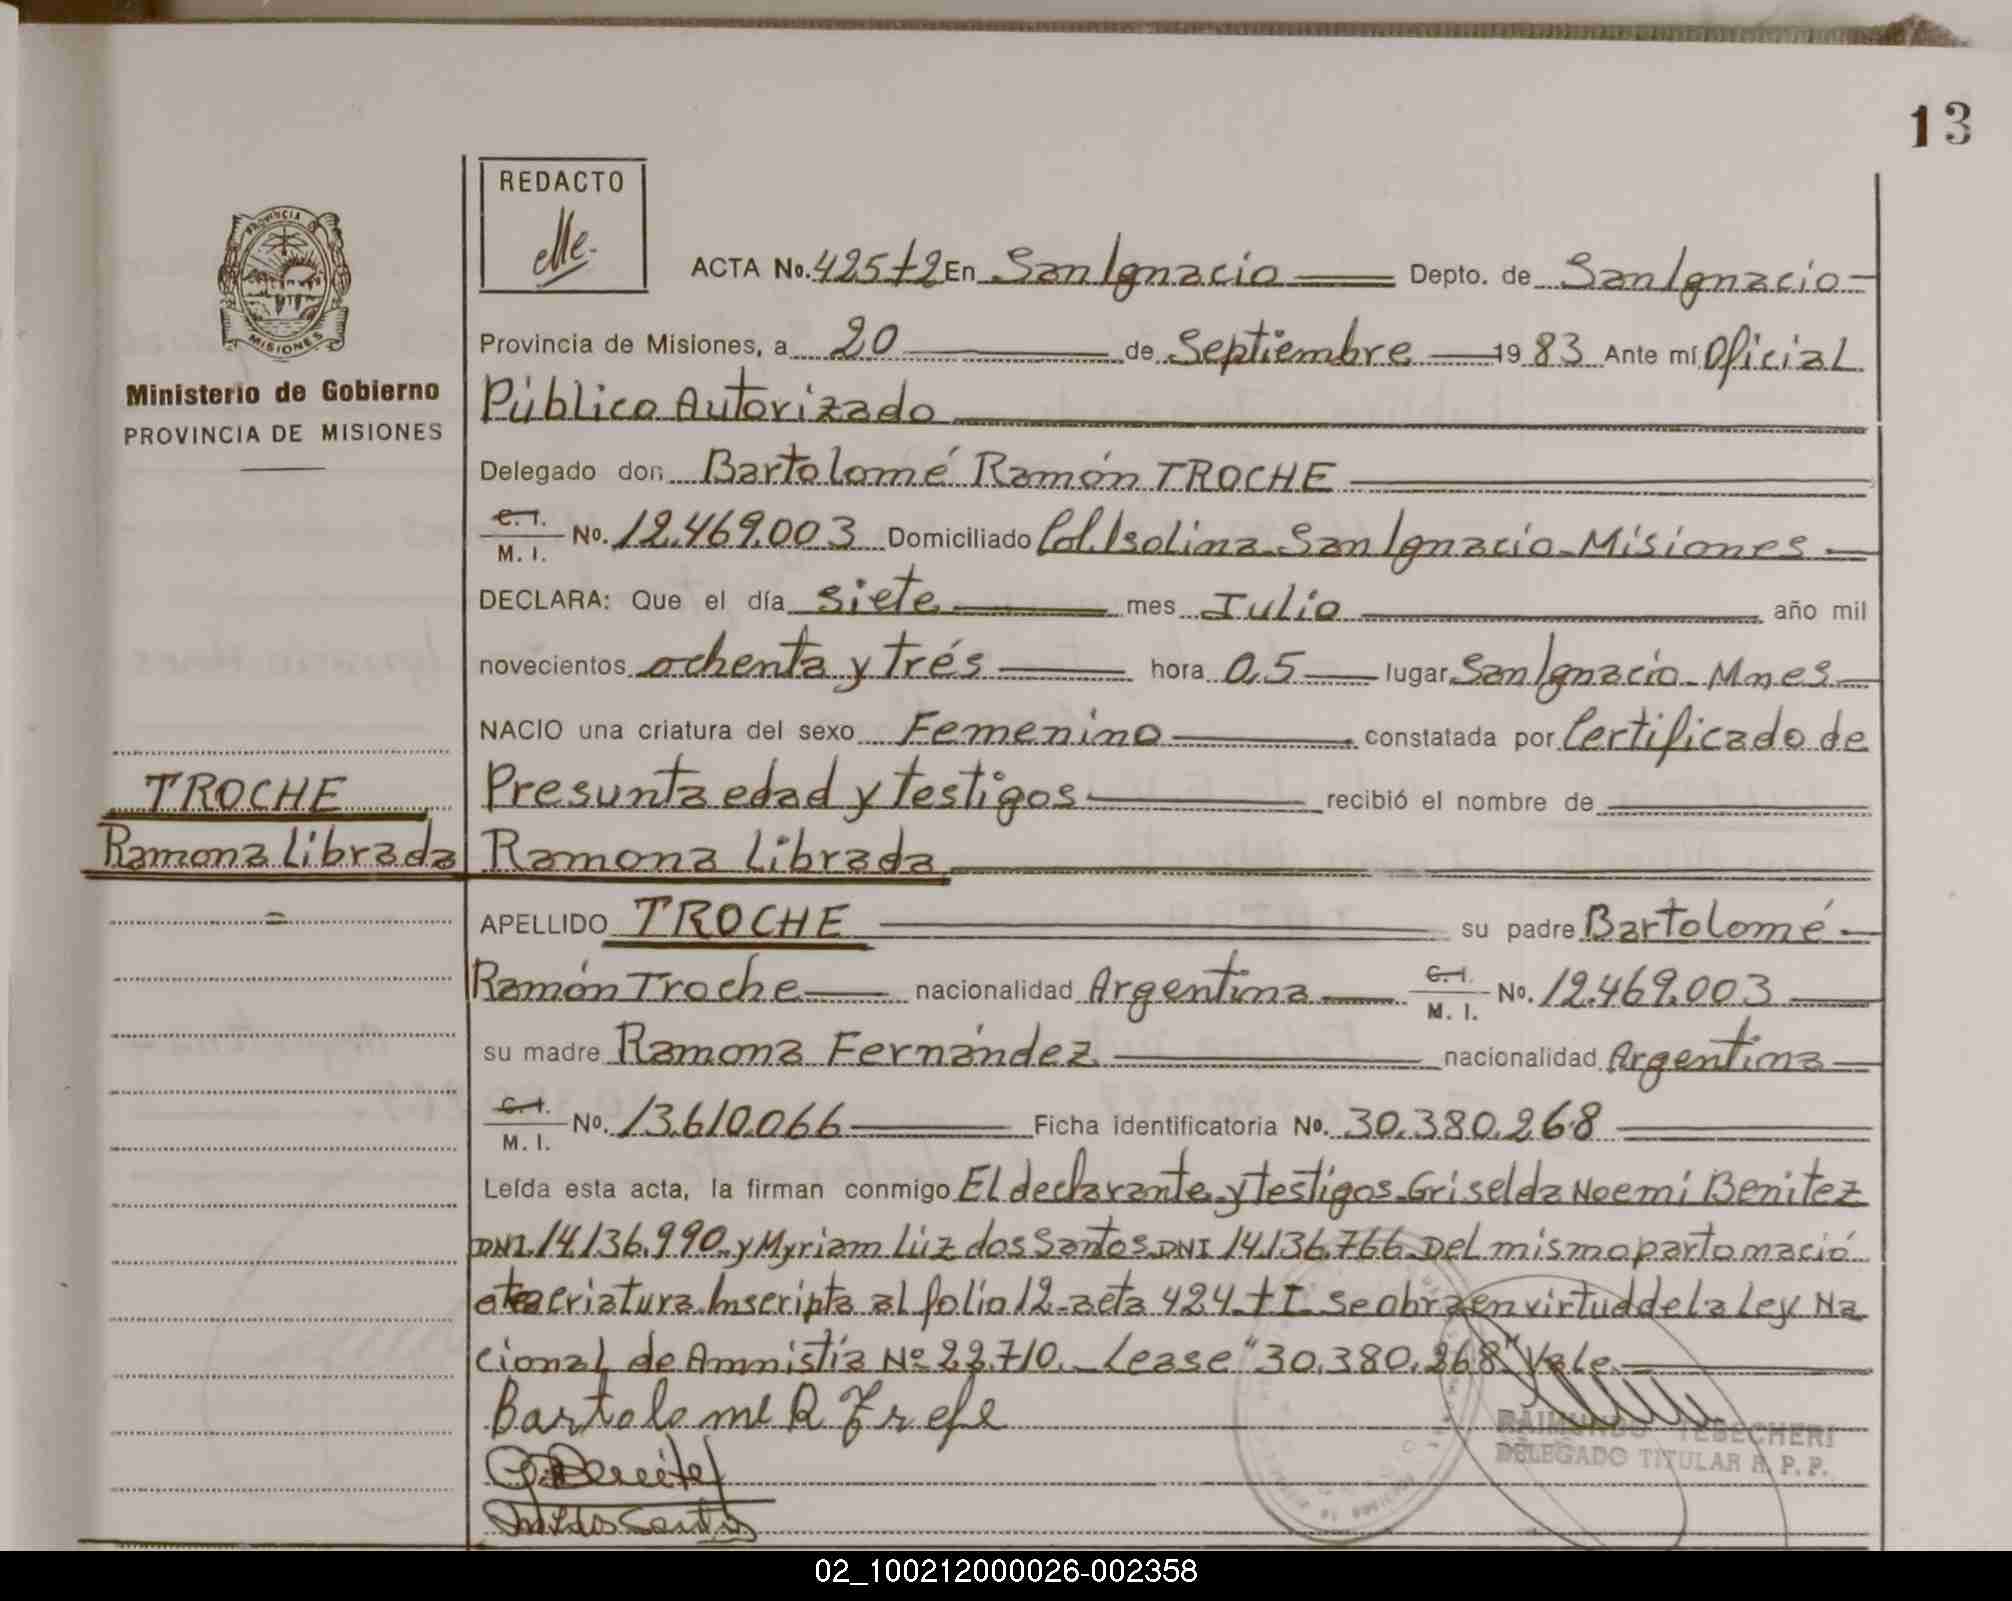 13
REDACTO
PROVINCIA DE
MISIONES
Ministerio de Gobierno
PROVINCIA DE MISIONES
ACTA No. 425 t2 En San Ignacio Depto. de San Ignacio
Provincia de Misiones, a 20 de Septiembre 19 83 Ante mí Oficial
Público Autorizado
Delegado don Bartolomé Ramón TROCHE
C. I. / M. I. No. 12.469.003 Domiciliado Col. Isolina San Ignacio Misiones
DECLARA: Que el día siete mes Julio año mil
novecientos ochenta y trés hora 0,5 lugar San Ignacio Mnes
NACIO una criatura del sexo Femenino constatada por Certificado de
Presunta edad y testigos recibió el nombre de
TROCHE
Ramona Librada
Ramona Librada
APELLIDO TROCHE su padre Bartolomé
Ramón Troche nacionalidad Argentina C. I. / M. I. No. 12.469.003
su madre Ramona Fernández nacionalidad Argentina
C. I. / M. I. No. 13.610.066 Ficha identificatoria No. 30.380.268
Leída esta acta, la firman conmigo El declarante y testigos Griselda Noemi Benitez
DNI. 14.136.990 y Myriam Luz dos Santos DNI 14.136.766 Del mismo parto nació
criatura Inscripta al folio 12 acta 424 t I Se obra en virtud de la Ley Na
cional de Amnistía Nº 22.710. Lease "30.380.268" Vale.
Bartolome R
Benitez
dos Santos
RAIMUNDO TEBECHERI
DELEGADO TITULAR R. P. P.
02_100212000026-002358